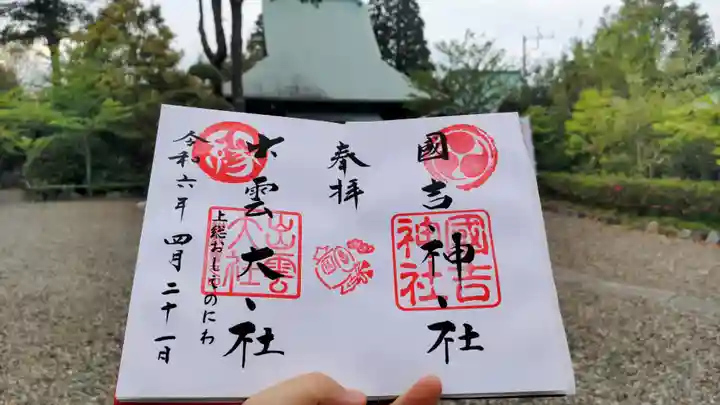 國吉神社
國吉神社
奉拝
出雲大社
出雲大社
上総おもぞのにわ
令和六年四月二十一日